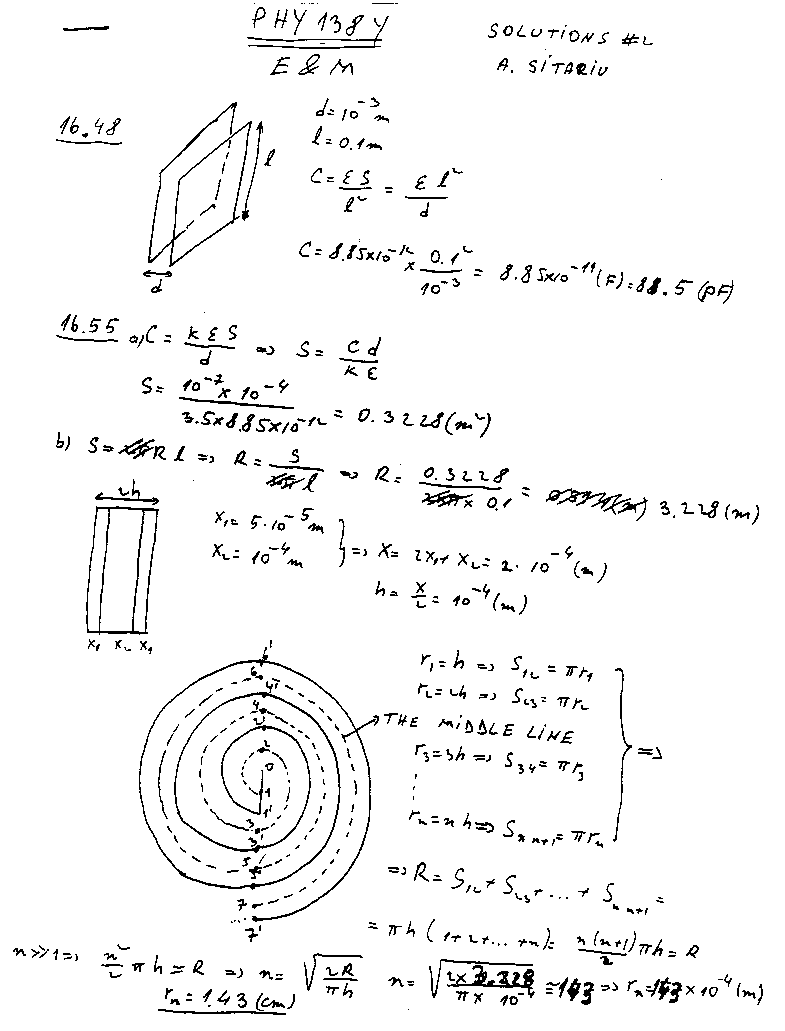 PHY 138Y
SOLUTIONS #2
E & M
A. SITARIU
16.48
d = 10^-3 m
l = 0.1 m
l
C = ε S / l² = ε l² / d
C = 8.85x10^-12 x 0.1² / 10^-3 = 8.85x10^-11 (F) = 88.5 (pF)
d
16.55 a) C = k ε S / d => S = C d / k ε
S = 10^-7 x 10^-4 / 3.5x8.85x10^-12 = 0.3228 (m²)
b) S = R l => R = S / l => R = 0.3228 / 0.1 = 3.228 (m)
2h
x₁ = 5·10^-5 m
x₂ = 10^-4 m
} => x = 2x₁ + x₂ = 2·10^-4 (m)
h = x / 2 = 10^-4 (m)
x₁ x₂ x₁
r₁ = h => S₁₂ = πr₁
r₂ = 2h => S₂₃ = πr₂
THE MIDDLE LINE
r₃ = 3h => S₃₄ = πr₃
} =>
rₙ = n h => Sₙ ₙ₊₁ = πrₙ
6'
6
4'
4
2'
2
0
1
1'
3
3'
5
5'
7
7'
=> R = S₁₂ + S₂₃ + ... + Sₙ ₙ₊₁ =
= πh (1+2+...+n) = n(n+1) / 2 πh = R
n >> 1 => n² / 2 πh = R => n = √(2R / πh) n = √(2 x 3.228 / π x 10^-4) = 143 => rₙ = 143 x 10^-4 (m)
rₙ = 1.43 (cm)